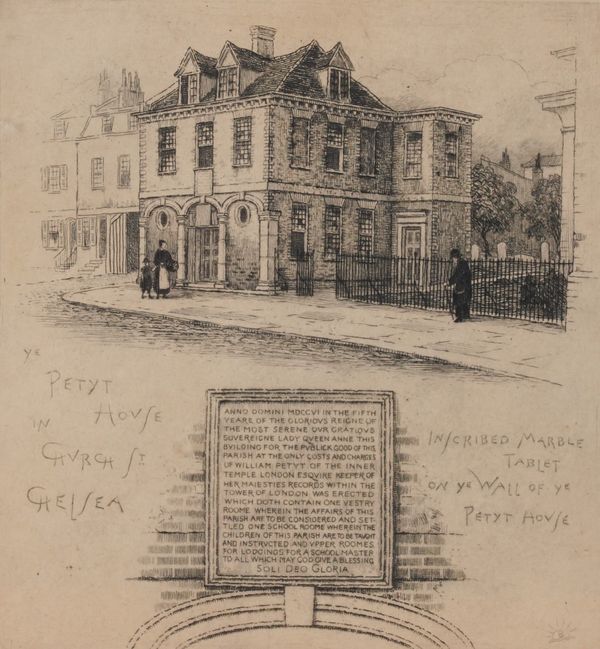 ye
PETYT
HOVSE
IN
CHVRCH ST
CHELSEA
ANNO DOMINI MDCCVI IN THE FIFTH
YEARE OF THE GLORIOVS REIGNE OF
THE MOST SERENE OVR GRATIOVS
SOVEREIGNE LADY QVEEN ANNE THIS
BVILDING FOR THE PVBLICK GOOD OF THIS
PARISH AT THE ONLY COSTS AND CHARGES
OF WILLIAM PETYT OF THE INNER
TEMPLE LONDON ESQVIRE KEEPER OF
HER MAIESTIES RECORDS WITHIN THE
TOWER OF LONDON WAS ERECTED
WHICH DOTH CONTAIN ONE VESTRY
ROOME WHEREIN THE AFFAIRS OF THIS
PARISH ARE TO BE CONSIDERED AND SET-
TLED ONE SCHOOL ROOME WHEREIN THE
CHILDREN OF THIS PARISH ARE TO BE TAUGHT
AND INSTRVCTED AND VPPER ROOMES
FOR LODGINGS FOR A SCHOOL MASTER
TO ALL WHICH MAY GOD GIVE A BLESSING
SOLI DEO GLORIA
INSCRIBED MARBLE
TABLET
ON ye WALL OF ye
PETYT HOVSE